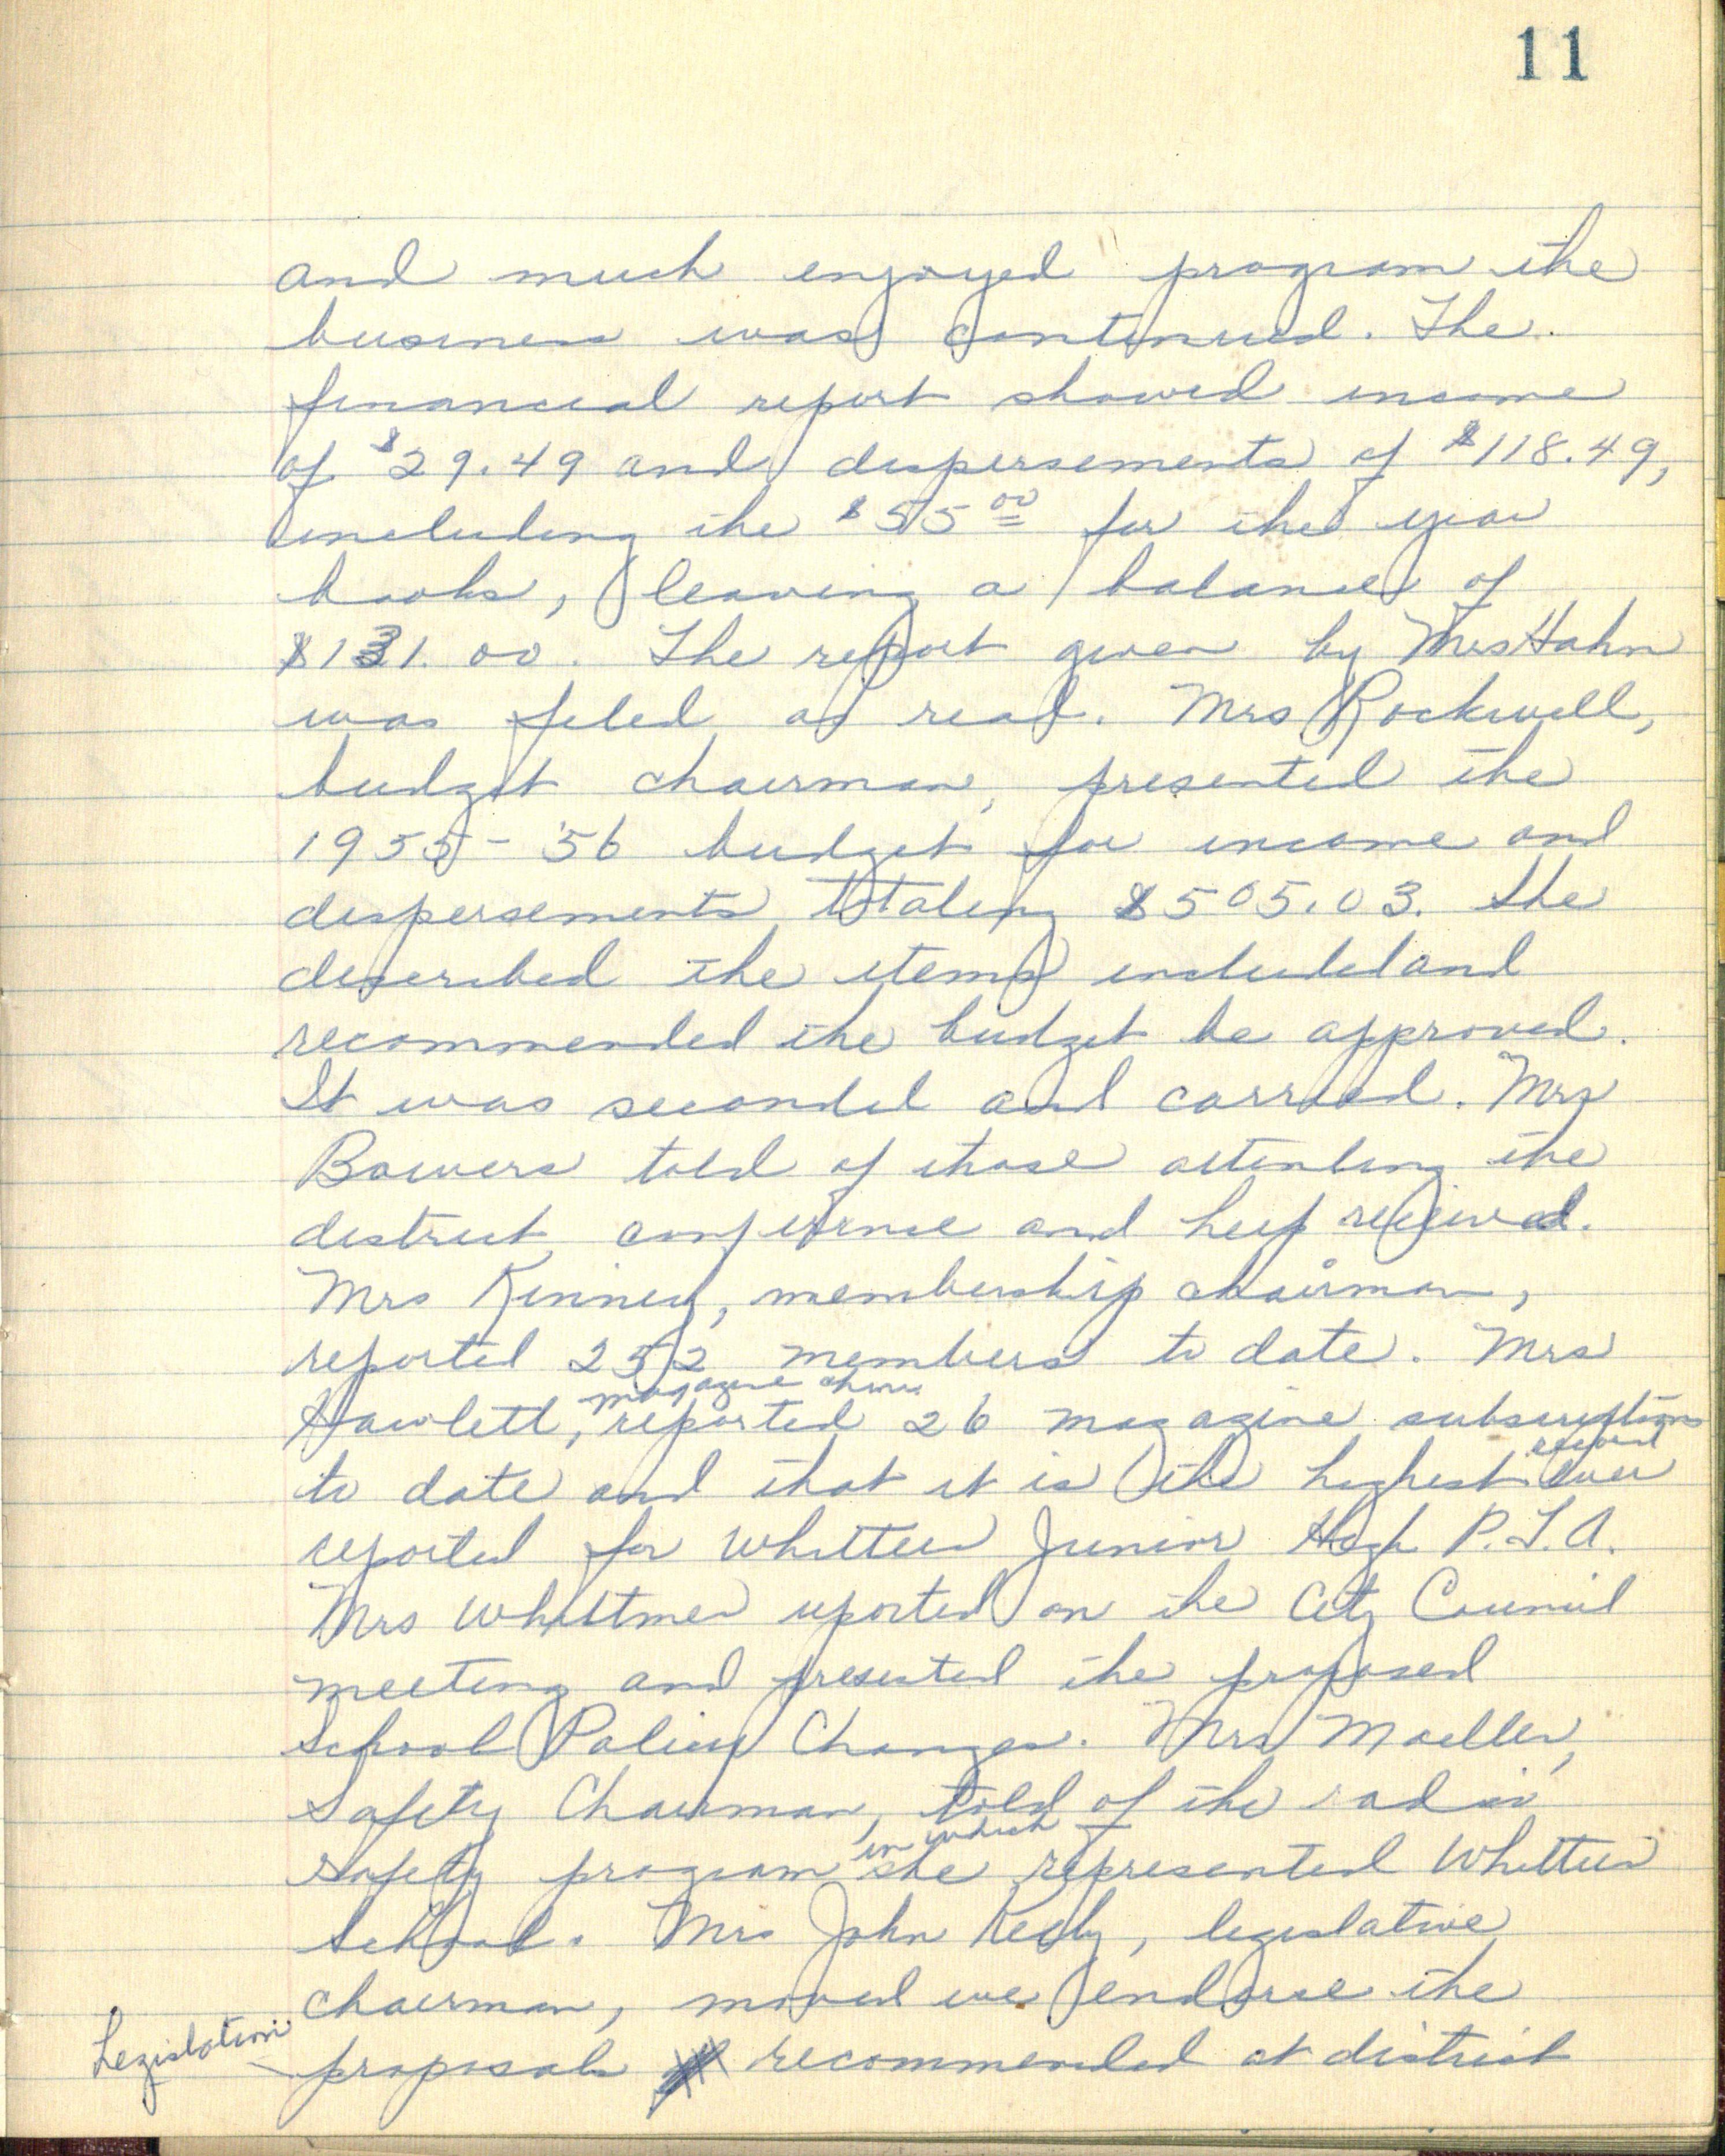 11
and much enjoyed program the
business was continued. The
financial report showed income
of $29.49 and dispersements of $118.49,
including the $55 00 for the year
books, leaving a balance of
$131.00. The report given by Mrs Hahn
was filed as read. Mrs Rockwell,
budget chairman, presented the
1955-'56 budget for income and
dispersements totaling $505.03. She
described the items included and
recommended the budget be approved.
It was seconded and carried. Mrs
Bowers told of those attending the
district conference and help received.
Mrs Kinney, membership chairman,
reported 252 members to date. Mrs
magazine chm.
Hawlett, reported 26 magazine subscriptions
to date and that it is the highest record ever
reported for Whittier Junior High P.T.A.
Mrs Whittmer reported on the City Council
meeting and presented the proposed
School Policy Changes. Mrs Moeller,
Safety Chairman, told of the radio
safety program in which she represented Whittier
School. Mrs John Keely, legislative
chairman, moved we endorse the
Legislation
proposals recommended at district